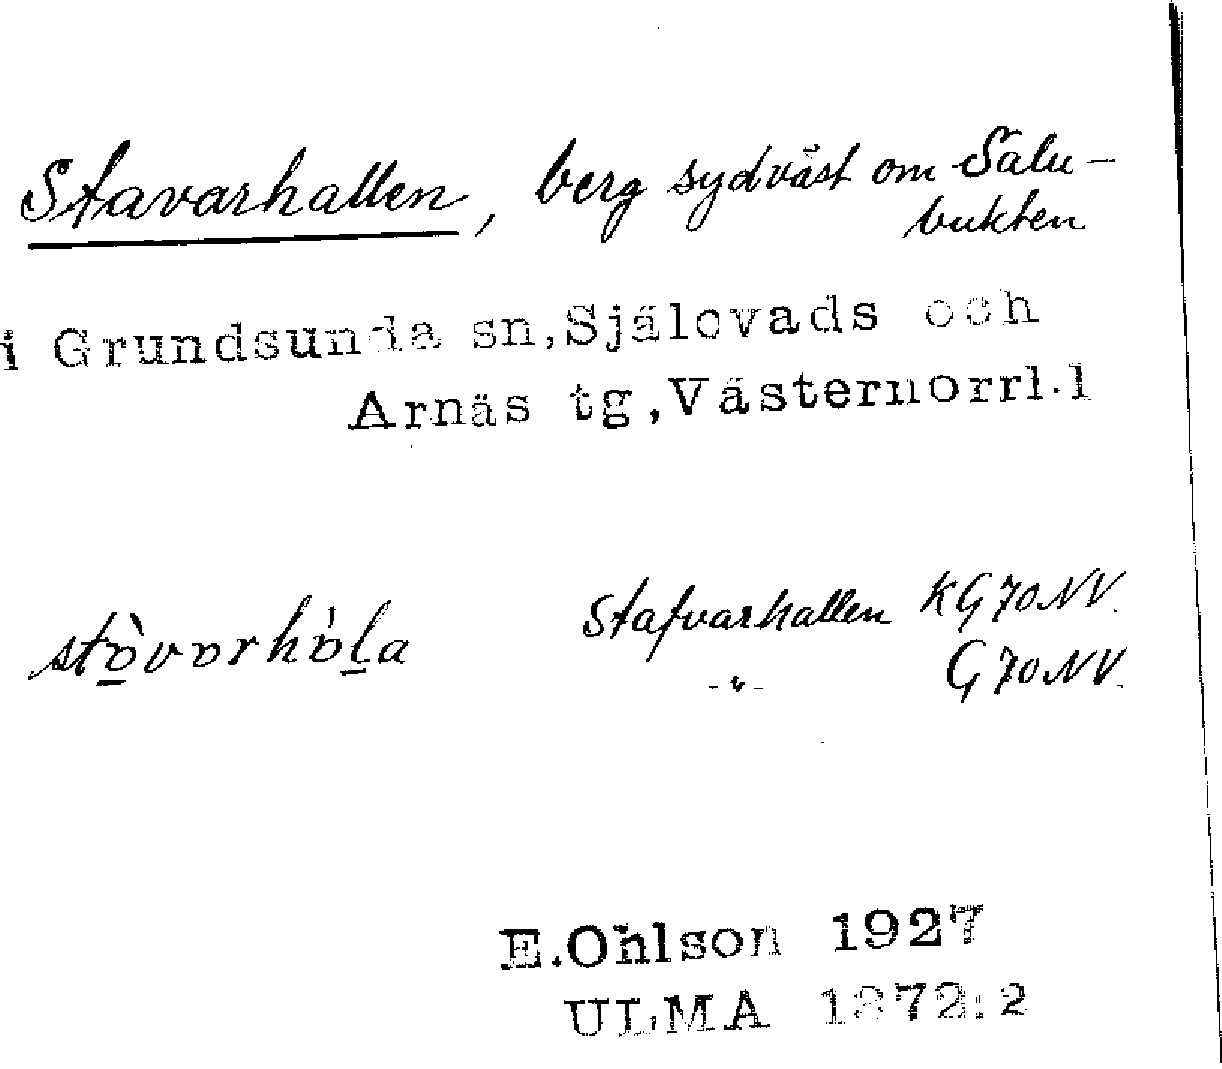 Stavarhallen, berg sydväst om Salu-
bukten
i Grundsunda sn, Själevads och
Arnäs tg, Västernorrl. l
stɒ̠̀vɒrhɒ̍l̠a Stafvarhallen KG 70 NV.
-"- G 70 NV.
E. Ohlson 1927
ULMA 1872:2